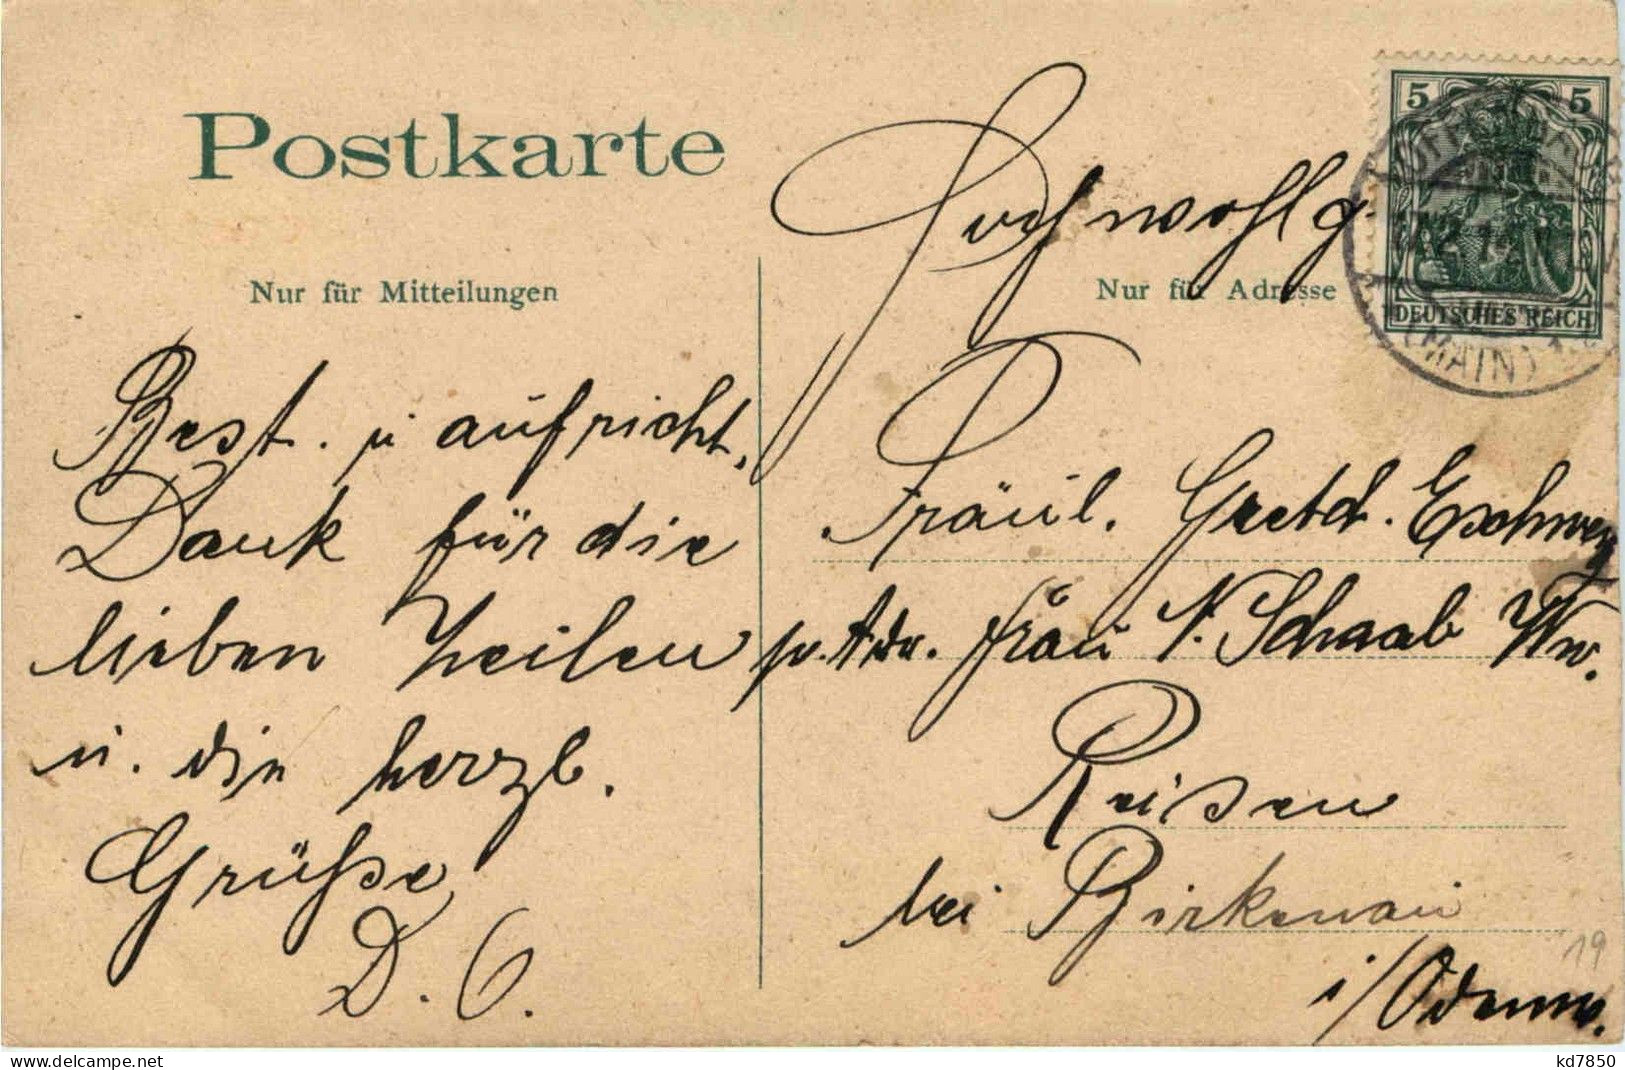 Postkarte
Nur für Mitteilungen
Best. u aufricht.
Dank für die
lieben Zeilen
u. die herzl.
Grüße
D. O.
Hochwohlg.
Nur für Adresse
5 5
DEUTSCHES REICH
(MAIN)
Fräul. Gretch. Eschwey
p. Adr. Frau N. Schaab Ww.
Reisen
bei Birkenau
i/Odenw.
19
delcampe.net
kd7850